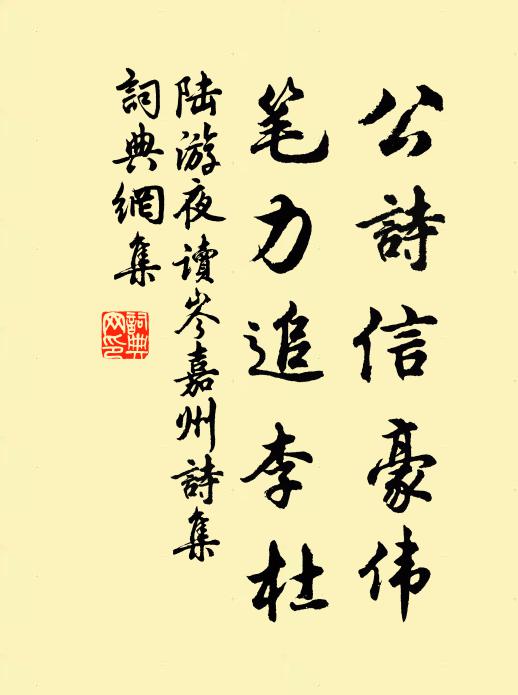 公詩信豪伟
笔力追李杜
陆游夜读岑嘉州詩集
詞典網集
詞典网印